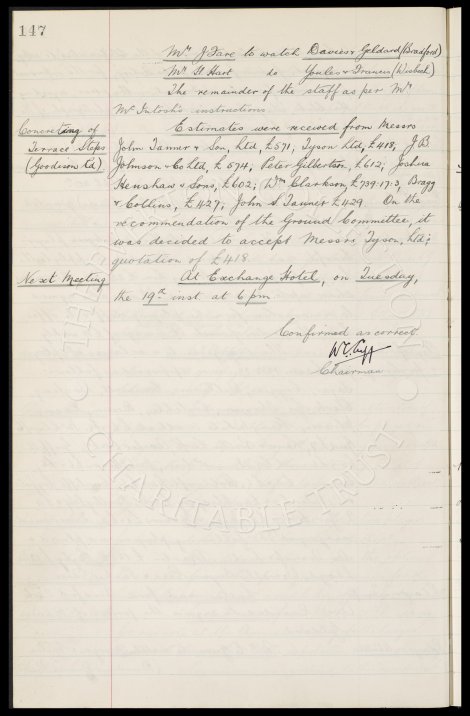 147
Mr. J Fare to watch Davies & Geldard (Bradford)
Mr. H Hart do Youles & Francis (Wisbech)
The remainder of the staff as per Mr.
McIntosh's instructions
Concreting of Terrace Steps (Goodison Rd)
Estimates were received from Messrs
John Tanner & Son, Ltd, £571, Tyson Ltd, £418, J B
Johnson & Co Ltd, £574; Peter Gilbertson, £612; Joshua
Henshaw & Sons, £602; Wm Clarkson, £739.17.3, Bragg
& Collins, £427; John S Tanner £429. On the
recommendation of the Ground Committee, it
was decided to accept Messrs Tyson, Ltd;
quotation of £418
Next Meeting
At Exchange Hotel, on Tuesday,
the 19th inst at 6 pm
Confirmed as correct
W.C. Cuff
Chairman
CHARITABLE TRUST